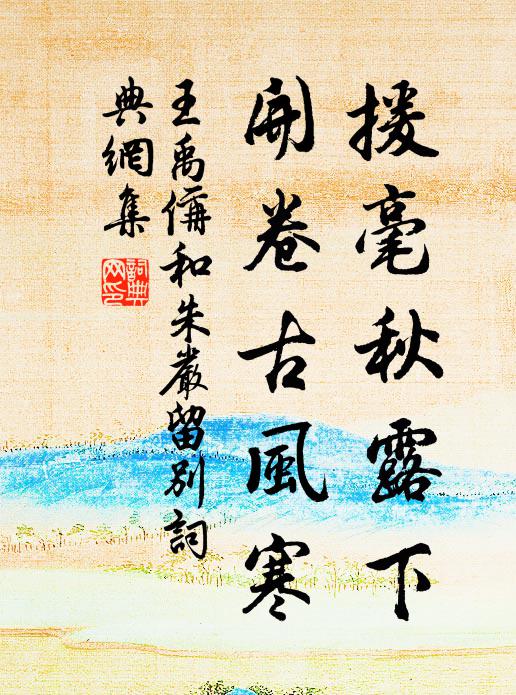 援毫秋露下
開卷古風寒
王禹偁和朱嚴留別詞
典網集
詞典網印